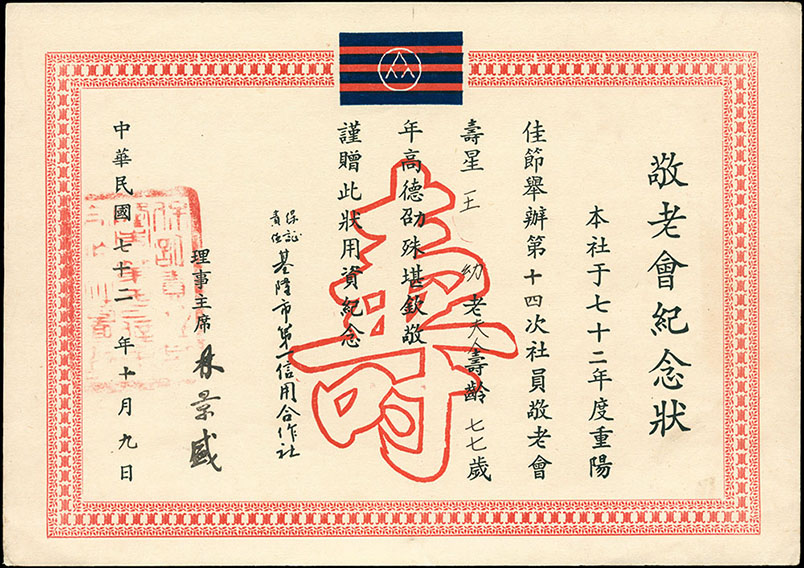 敬老會紀念狀
本社于七十二年度重陽
佳節舉辦第十四次社員敬老會
壽星 王 幼 老夫人壽齡 七七歲
年高德劭殊堪欽敬
謹贈此狀用資紀念
保証責任基隆市第一信用合作社
理事主席 林景盛
中華民國七十二年十月九日
壽